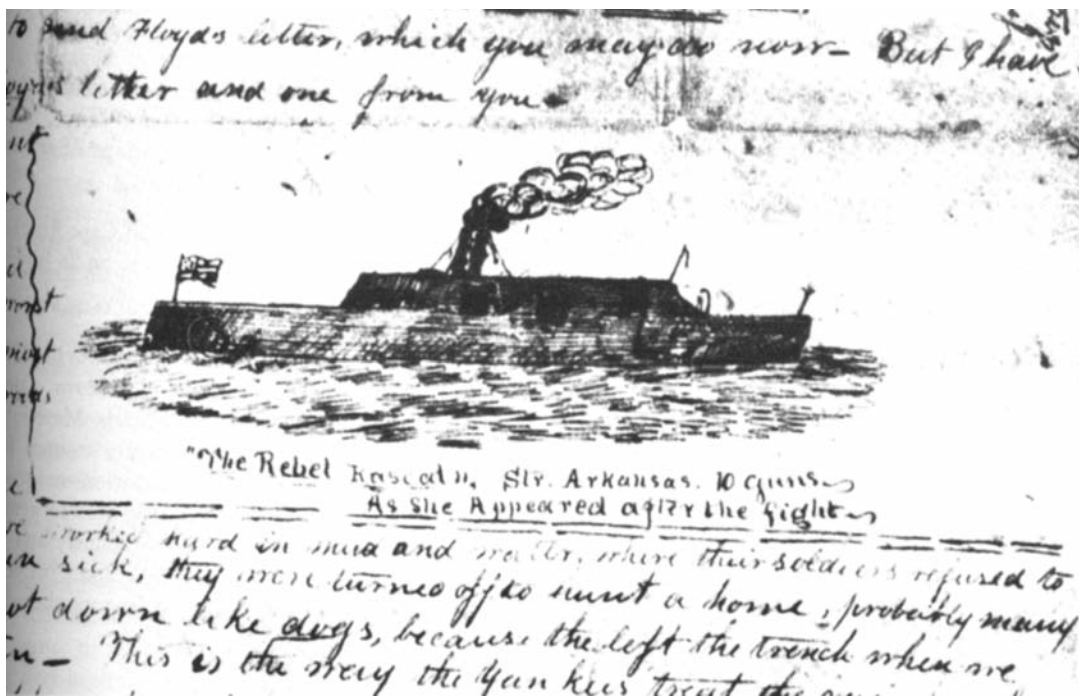 to send Floyds letter, which you may do now – But I have
letter and one from you –
nt
ve
worst
most
"The Rebel Rascal", Str. Arkansas. 10 guns
As She Appeared after the fight
worked hard in mud and water, where their soldiers refused to
sick, they were turned off to hunt a home, probably many
down like dogs, because the left the trench when we
– This is the way the Yankees treat the